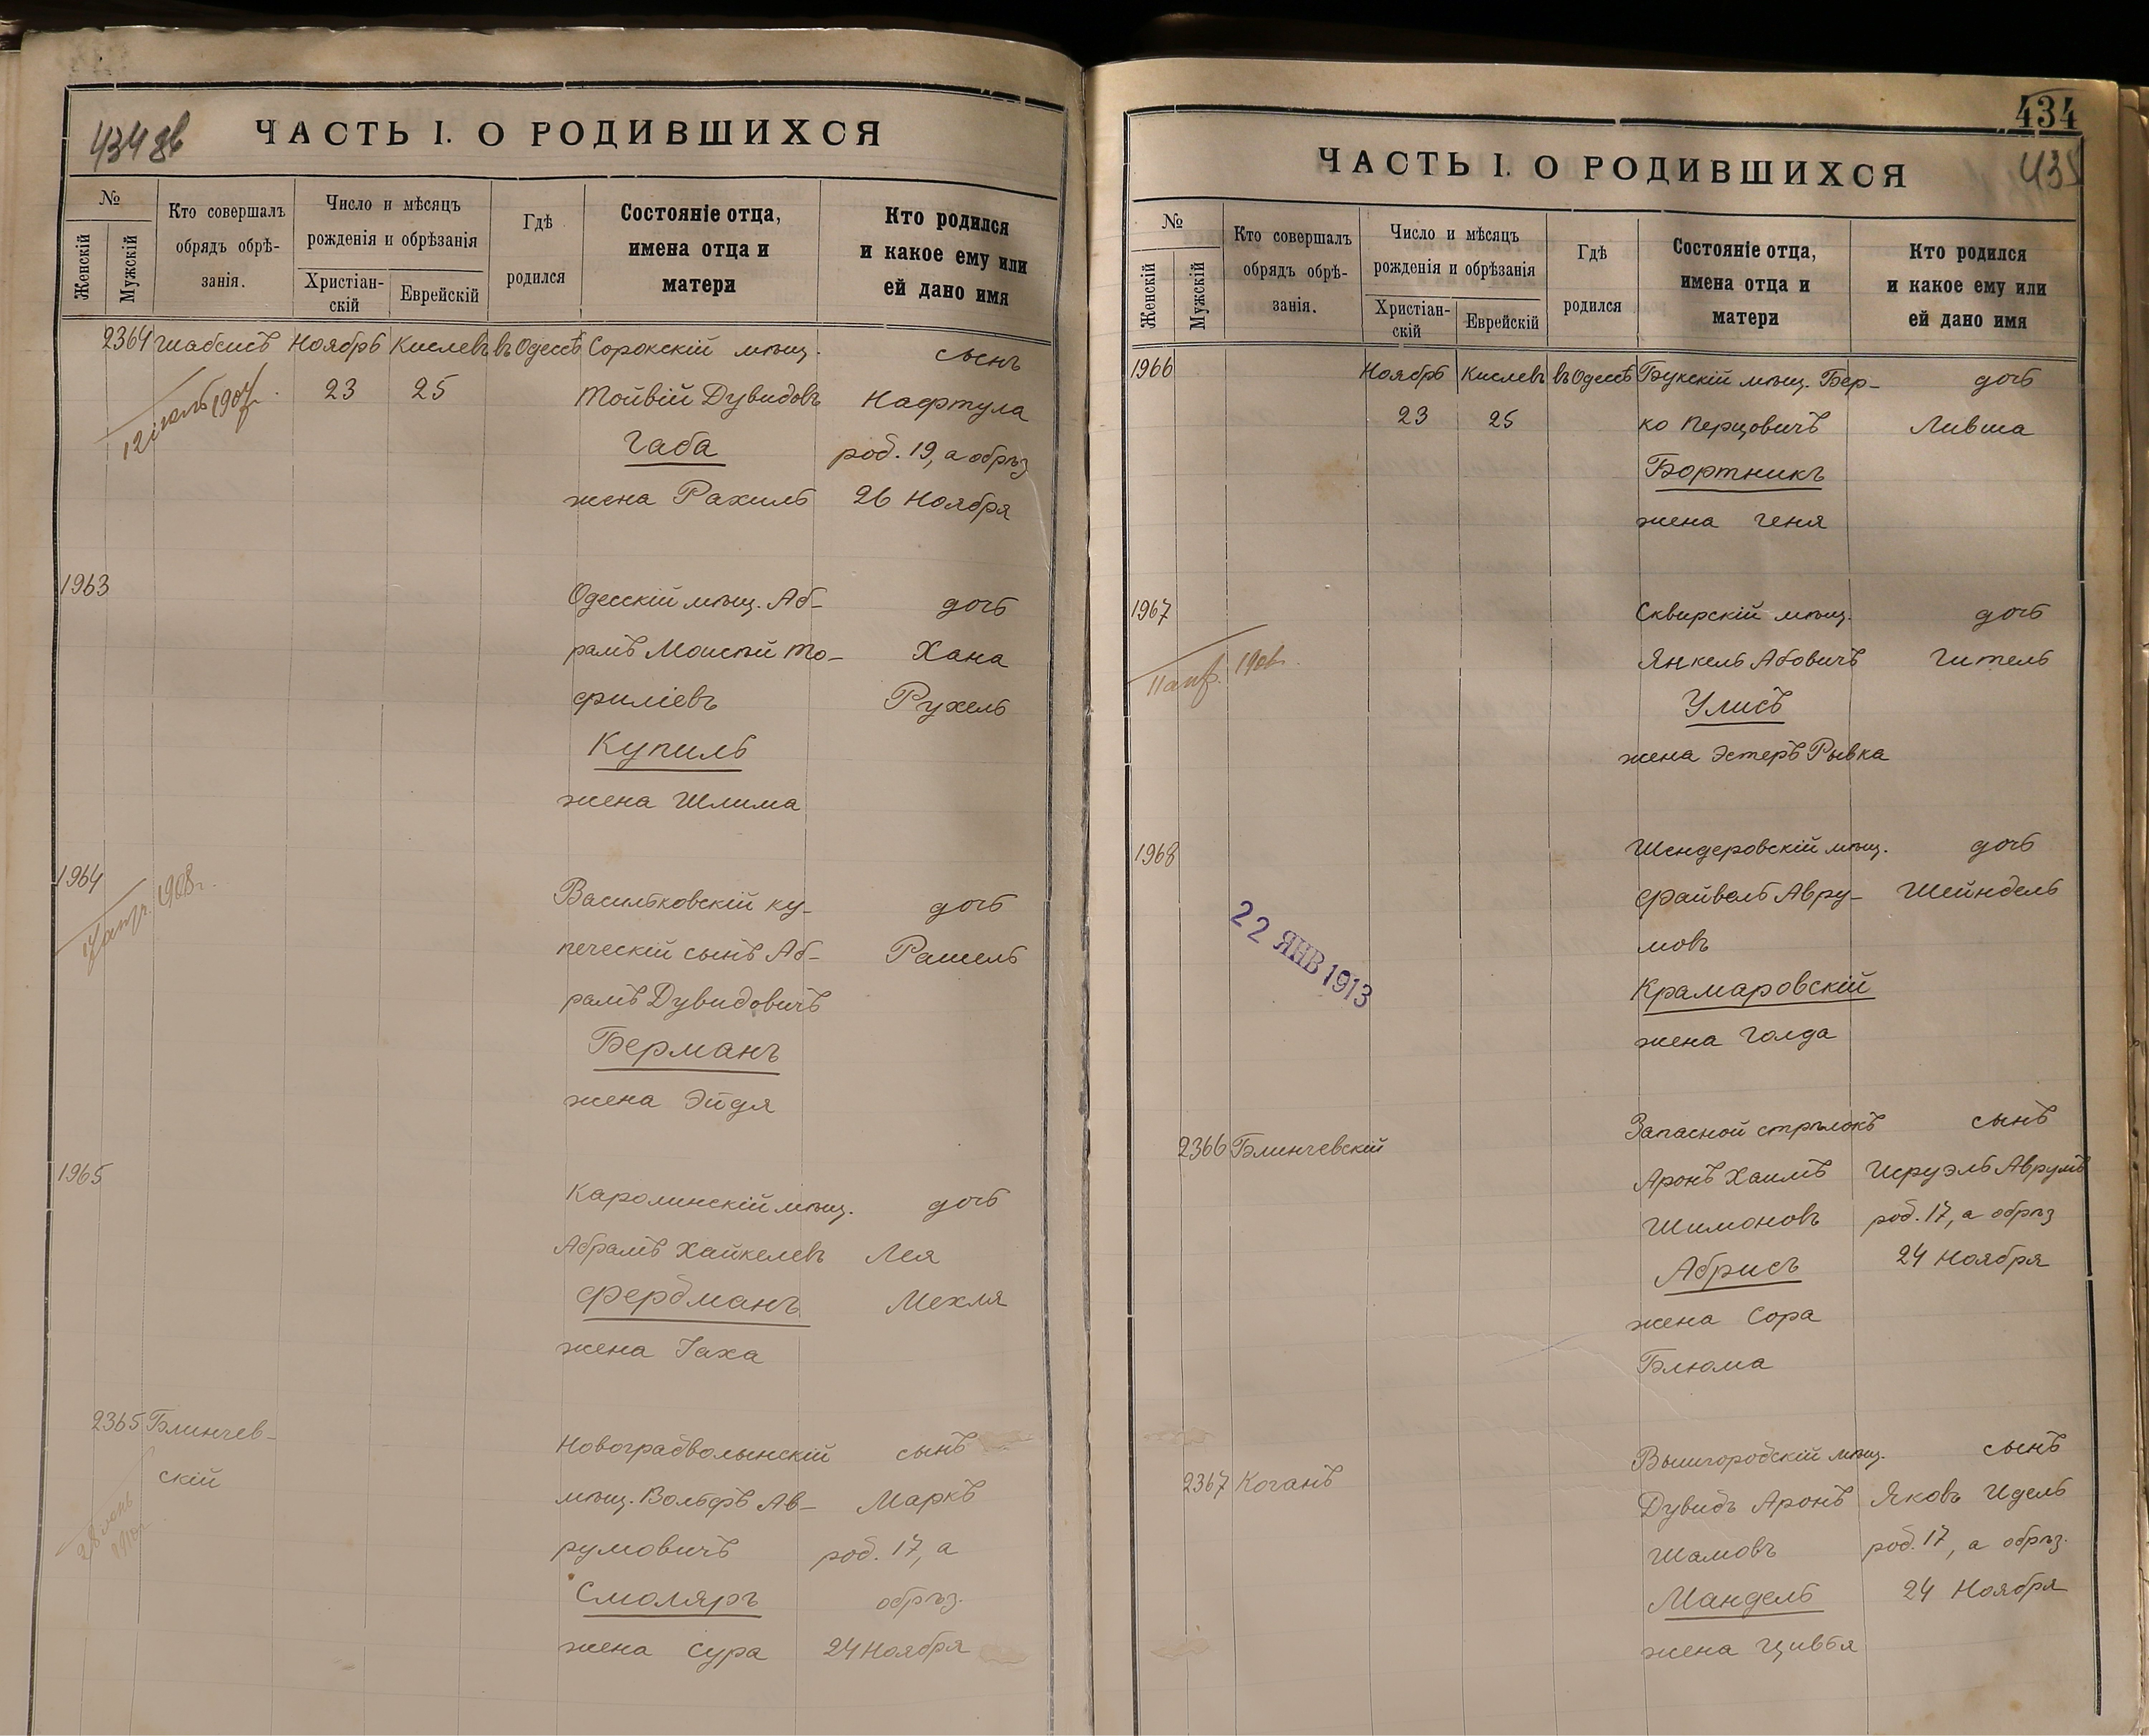 434 об
ЧАСТЬ I. О РОДИВШИХСЯ
№
Женскій
Мужскій
Кто совершалъ
обрядъ обрѣ-
занія.
Число и мѣсяцъ
рожденія и обрѣзанія
Христіан-
скій
Еврейскій
Гдѣ
родился
Состояніе отца,
имена отца и
матери
Кто родился
и какое ему или
ей дано имя
2364 Шабсисъ Ноябрь Кислевъ въ Одессѣ Сорокскій мѣщ. сынъ
23 25 Тойвій Дувидовъ Нафтула
Габа род. 19, а обрѣз
жена Рахиль 26 Ноября
1963
Одесскій мѣщ. Аб- дочь
рамъ Моисѣй То- Хана
филіевъ Рухель
Купиль
жена Шлима
1964
17 апр. 1908 г.
Васильковскій ку- дочь
печескій сынъ Аб- Рашель
рамъ Дувидовичъ
Берманъ
жена Эйдля
1965
Каролинскій мѣщ. дочь
Абрамъ Хайкелевъ Лея
Фердманъ Мехля
жена Хаха
2365 Блинчев-
скій
Новоградволынскій сынъ
мѣщ. Вольфъ Ав- Маркъ
румовичъ род. 17, а
Смоляръ обрѣз.
жена Сура 24 Ноября
434
435
ЧАСТЬ I. О РОДИВШИХСЯ
№
Женскій
Мужскій
Кто совершалъ
обрядъ обрѣ-
занія.
Число и мѣсяцъ
рожденія и обрѣзанія
Христіан-
скій
Еврейскій
Гдѣ
родился
Состояніе отца,
имена отца и
матери
Кто родился
и какое ему или
ей дано имя
1966 Ноябрь Кислевъ въ Одессѣ Букскій мѣщ. Бер- дочь
23 25 ко Перцовичъ Лившa
Бортникъ
жена Геня
1967 Сквирскій мѣщ. дочь
11 апр. 1908 г.
Янкель Абовичъ Гитель
Улисъ
жена Эстеръ Рывка
1968 Шендеровскій мѣщ. дочь
Файвель Авру- Шейндель
мовъ
22 ЯНВ 1913
Крамаровскій
жена Голда
Запасной стрѣлокъ сынъ
2366 Блинчевскій
Аронъ Хаимъ Исруэль Аврумъ
Шимоновъ род. 17, а обрѣз
Абрисъ 24 Ноября
жена Сора
Блюма
Вышгородскій мѣщ. сынъ
2367 Коганъ
Дувидъ Аронъ Яковъ Идель
Шамовъ род. 17, а обрѣз.
Мандель 24 Ноября
жена Цивья